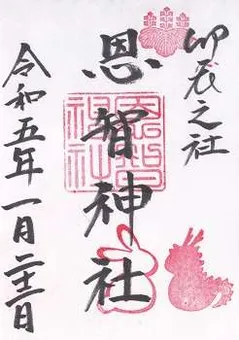 卯辰之社
恩智神社
恩智神社
令和五年一月二十二日